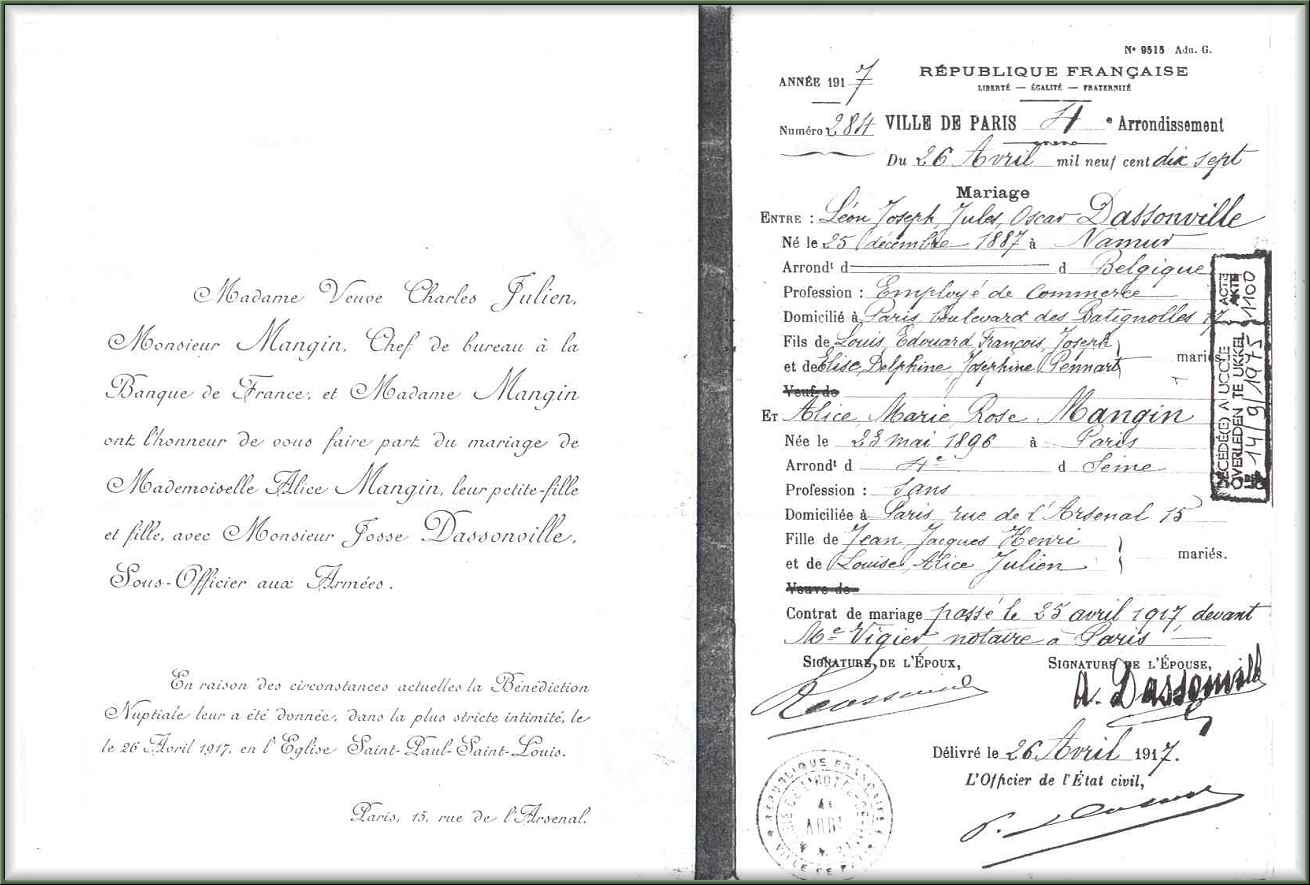 Madame Veuve Charles Julien,
Monsieur Mangin, Chef de bureau à la
Banque de France, et Madame Mangin
ont l'honneur de vous faire part du mariage de
Mademoiselle Alice Mangin, leur petite-fille
et fille, avec Monsieur Josse Dassonville,
Sous-Officier aux Armées.
En raison des circonstances actuelles la Bénédiction
Nuptiale leur a été donnée, dans la plus stricte intimité, le
le 26 Avril 1917, en l'Eglise Saint-Paul-Saint-Louis.
Paris, 15, rue de l'Arsenal.
N° 9515 Adn. G.
RÉPUBLIQUE FRANÇAISE
LIBERTÉ — ÉGALITÉ — FRATERNITÉ
ANNÉE 1917
Numéro 284 VILLE DE PARIS 4e Arrondissement
Du 26 Avril mil neuf cent dix sept
Mariage
ENTRE : Léon, Joseph, Jules, Oscar Dassonville
Né le 25 décembre 1887 à Namur
Arrondt d d Belgique
Profession : Employé de Commerce
Domicilié à Paris, boulevard des Batignolles 17
Fils de Louis, Edouard, François, Joseph
et de Elise, Delphine, Josephine Pennart mariés.
Veuf de
ET Alice, Marie, Rose Mangin
Née le 23 mai 1896 à Paris
Arrondt d 4e d Seine
Profession : Sans
Domiciliée à Paris, rue de l'Arsenal 15
Fille de Jean, Jacques, Henri
et de Louise, Alice Julien mariés.
Veuve de
Contrat de mariage passé le 25 avril 1917, devant
Me Vigier, notaire à Paris
SIGNATURE DE L'ÉPOUX, SIGNATURE DE L'ÉPOUSE,
A. Dassonville
Délivré le 26 Avril 1917.
L'Officier de l'État civil,
DÉCÉDÉ(E) A UCCLE ACTE
OVERLEDEN TE UKKEL AKTE
LE 14/9/1975 1100
RÉPUBLIQUE FRANÇAISE